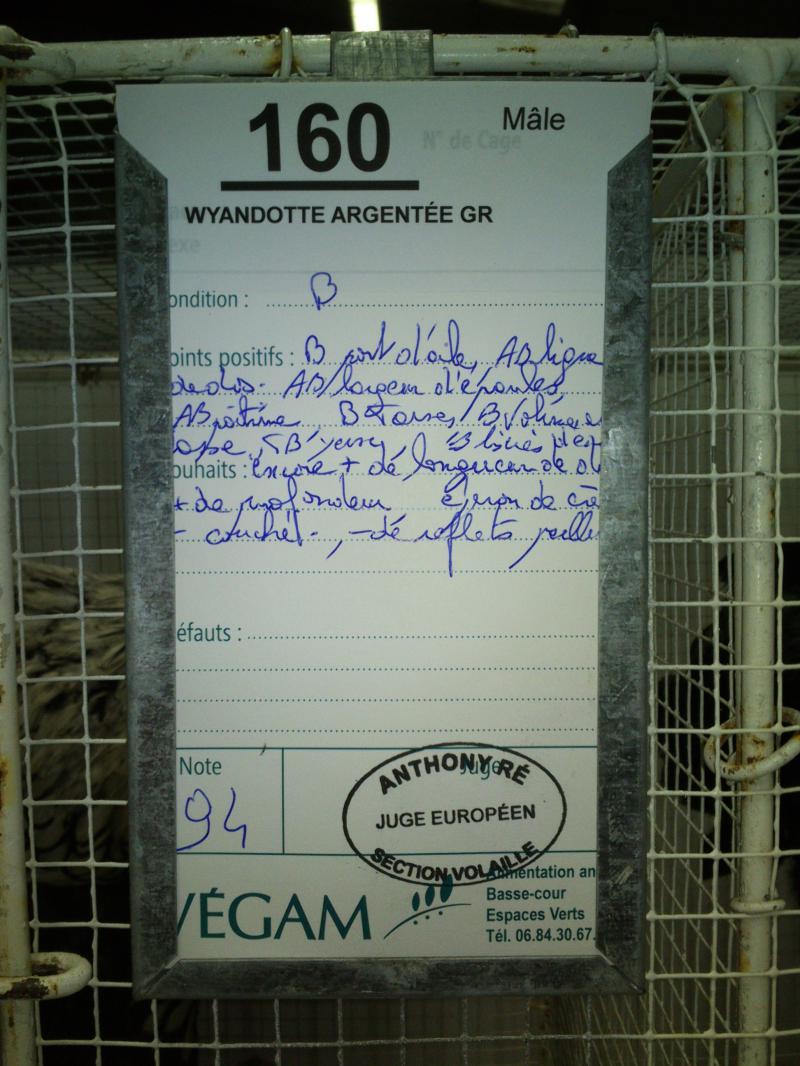 160
Mâle
N° de Cage
WYANDOTTE ARGENTÉE GR
exe
ondition : B
oints positifs : B port d'aile, AB ligne
de dos. AB largeur d'épaules,
AB poitrine, B Tarses, B Volume
B liserés
ouhaits : Encore + de longueur de
+ de profondeur éperon de crê
- couché. , - de reflets paille
éfauts :
Note
Juge
94
ANTHONY RÉ
JUGE EUROPÉEN
SECTION VOLAILLE
VÉGAM
Alimentation an
Basse-cour
Espaces Verts
Tél. 06.84.30.67.